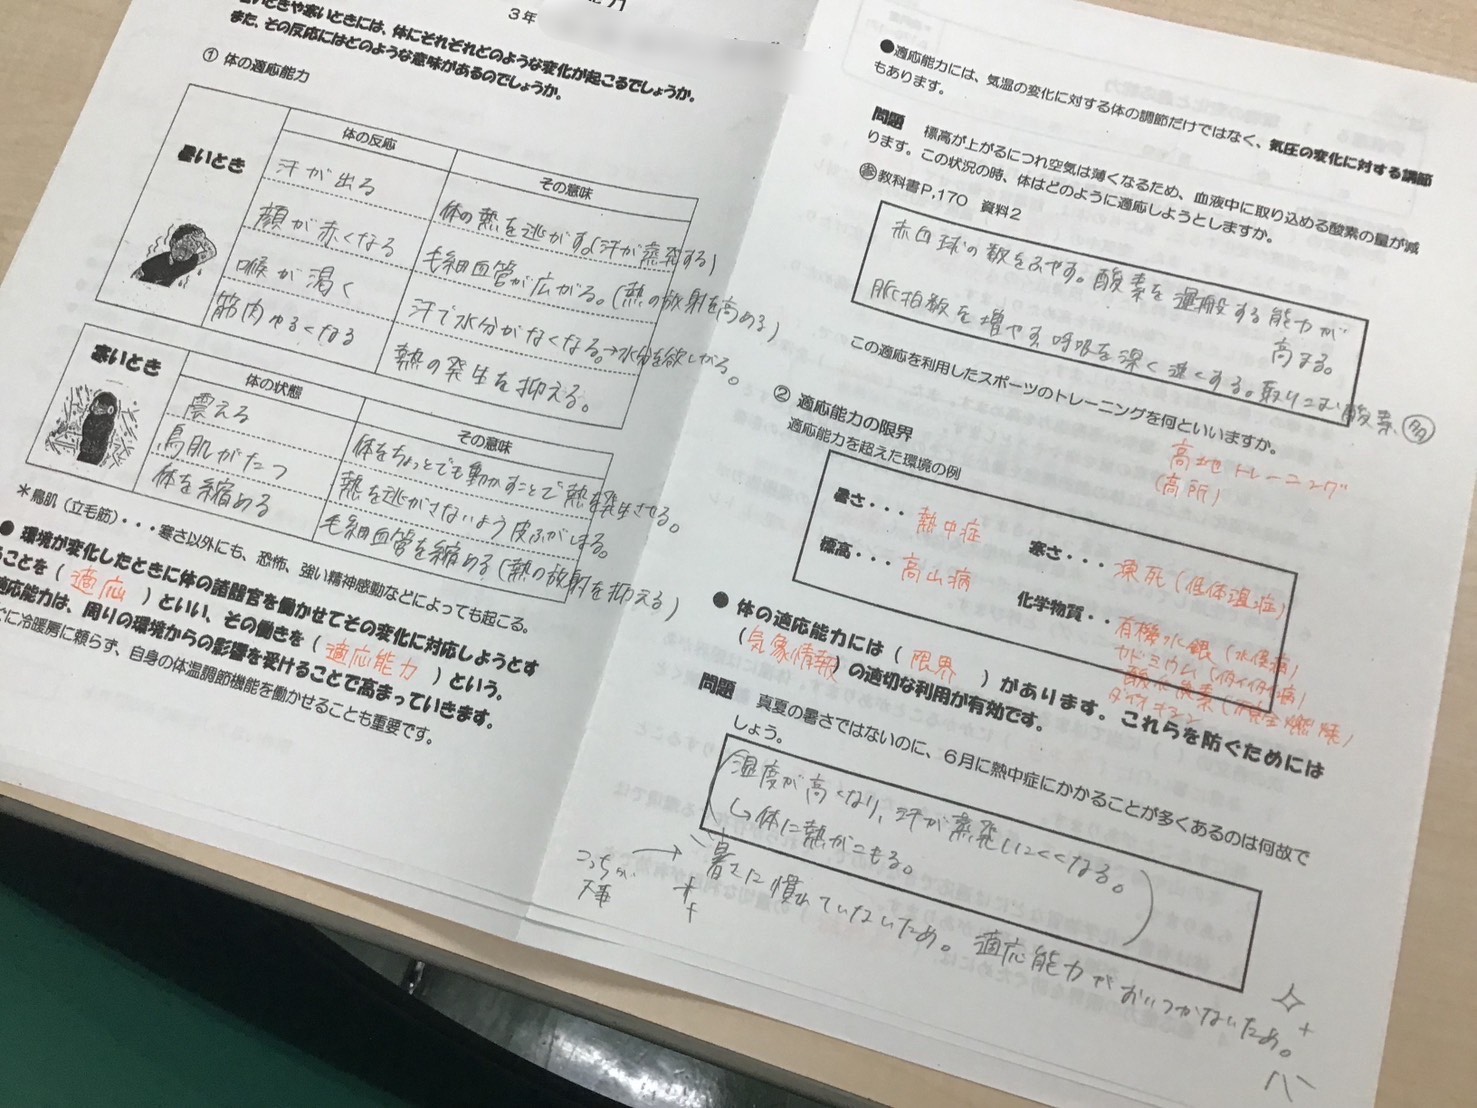 ３年
いときや寒いときには、体にそれぞれどのような変化が起こるでしょうか。
また、その反応にはどのような意味があるのでしょうか。
① 体の適応能力
暑いとき
体の反応
その意味
汗が出る
体の熱を逃がす(汗が蒸発する)
顔が赤くなる
毛細血管が広がる。(熱の放射を高める)
喉が渇く
汗で水分がなくなる。→水分を欲しがる。
筋肉ゆるくなる
熱の発生を抑える。
寒いとき
体の状態
その意味
震える
体をちょっとでも動かすことで熱を発生させる。
鳥肌がたつ
熱を逃がさないよう皮ふがしまる。
体を縮める
毛細血管を縮める(熱の放射を抑える)
＊鳥肌（立毛筋）・・・寒さ以外にも、恐怖、強い精神感動などによっても起こる。
● 環境が変化したときに体の諸器官を働かせてその変化に対応しようとす
ることを（ 適応 ）といい、その働きを（ 適応能力 ）という。
適応能力は、周りの環境からの影響を受けることで高まっていきます。
ぐに冷暖房に頼らず、自身の体温調節機能を働かせることも重要です。
●適応能力には、気温の変化に対する体の調節だけではなく、気圧の変化に対する調節
もあります。
問題 標高が上がるにつれ空気は薄くなるため、血液中に取り込める酸素の量が減
ります。この状況の時、体はどのように適応しようとしますか。
参教科書P,170 資料２
赤血球の数をふやす。酸素を運搬する能力が
高まる。
脈拍数を増やす、呼吸を深く速くする。取りこむ酸素 多
この適応を利用したスポーツのトレーニングを何といいますか。
高地トレーニング
(高所)
② 適応能力の限界
適応能力を超えた環境の例
暑さ・・・ 熱中症
寒さ・・・ 凍死(低体温症)
標高・・・ 高山病
化学物質・・ 有機水銀(水俣病)
カドミウム(イタイイタイ病)
一酸化炭素(不完全燃焼)
ダイオキシン
● 体の適応能力には（ 限界 ）があります。これらを防ぐためには
（気象情報）の適切な利用が有効です。
問題 真夏の暑さではないのに、６月に熱中症にかかることが多くあるのは何故で
しょう。
(湿度が高くなり、汗が蒸発しにくくなる。
↳体に熱がこもる。)
こっちが
大事
→
暑さに慣れていないため。適応能力がおいつかないため。